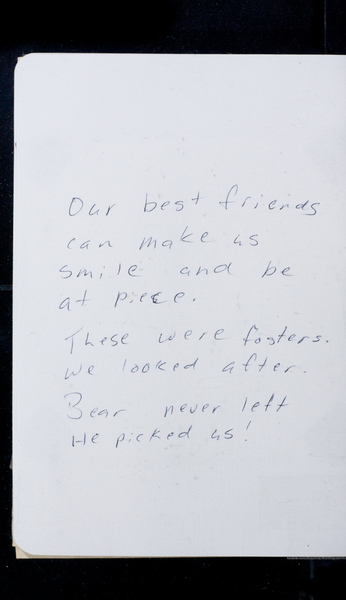 Our best friends
can make us
smile and be
at piece.
These were fosters.
We looked after.
Bear never left
He picked us!